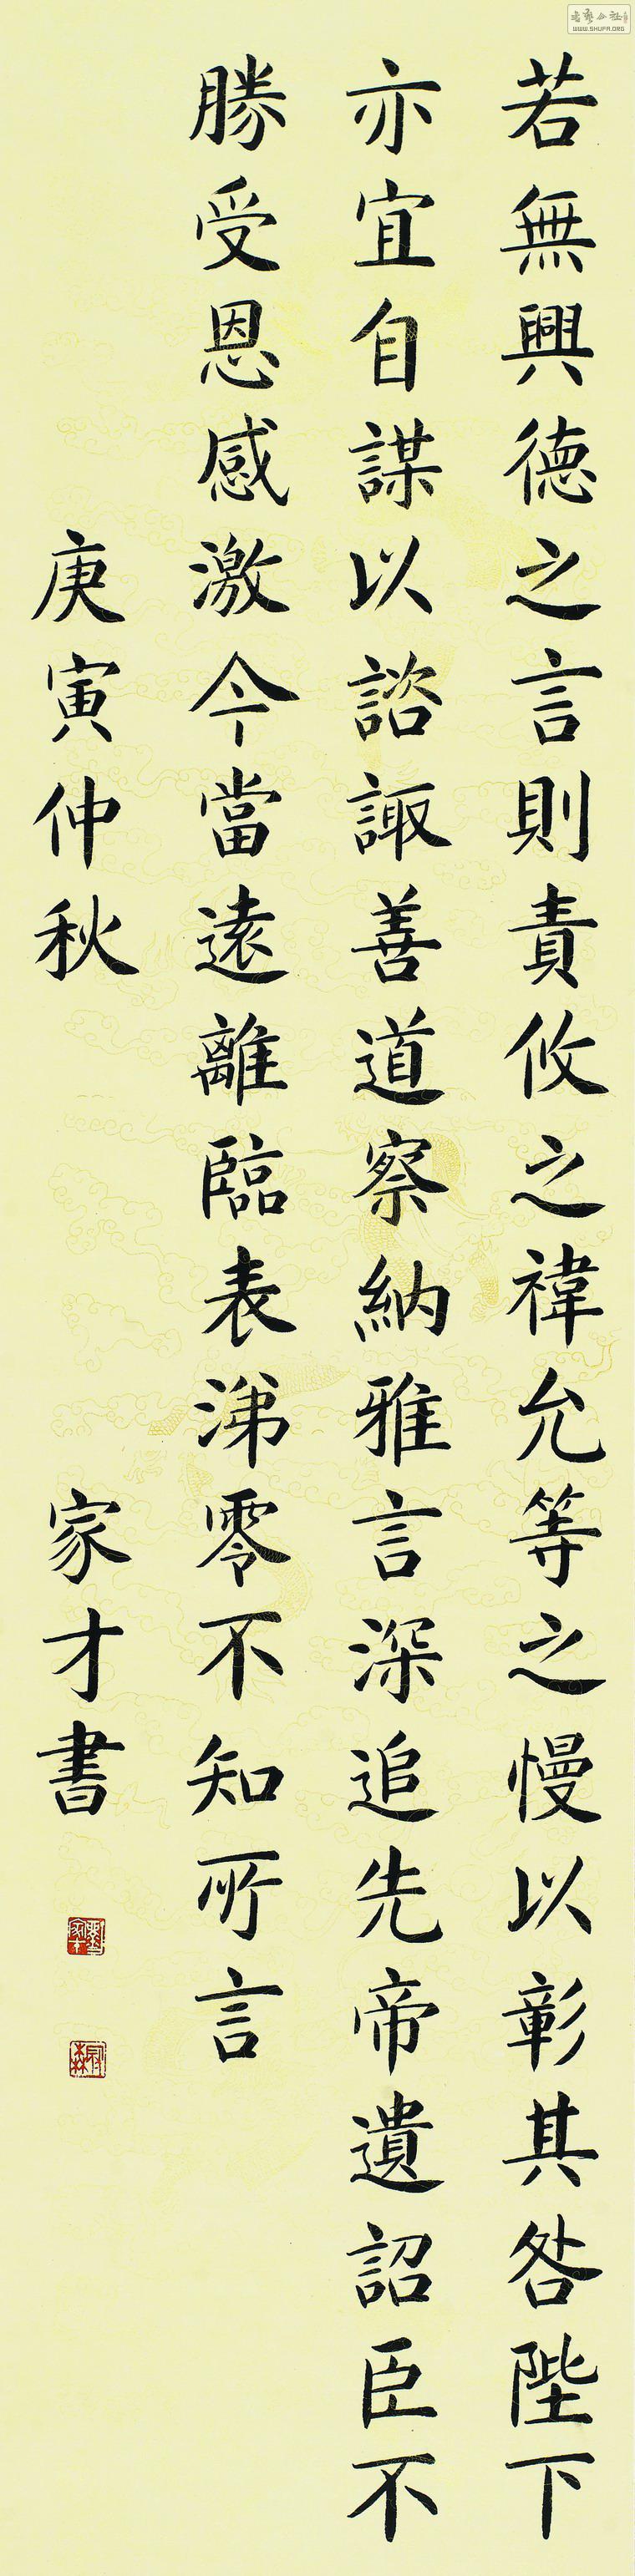 若無興德之言則責攸之禕允等之慢以彰其咎陛下
亦宜自謀以諮諏善道察納雅言深追先帝遺詔臣不
勝受恩感激今當遠離臨表涕零不知所言
庚寅仲秋 家才書
WWW.SHUFA.ORG